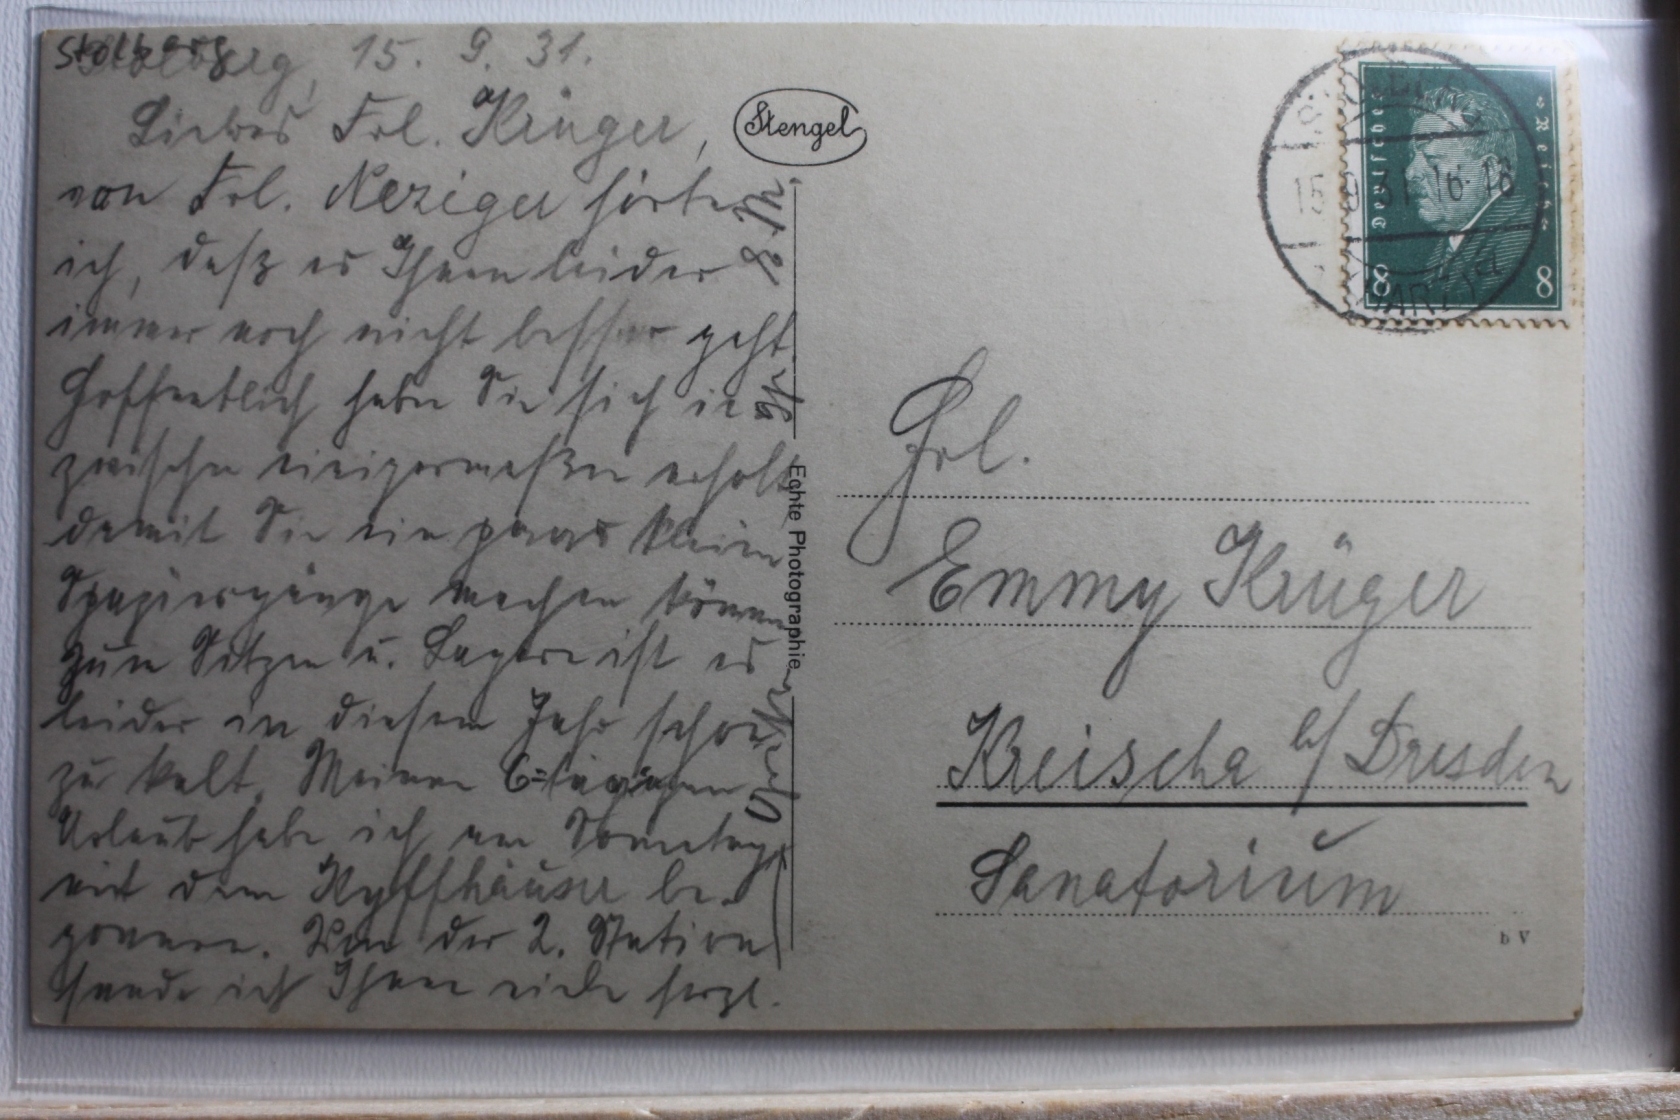 Stolberg, 15. 9. 31.
Liebes Frl. Krüger,
von Frl. Neziger hörte
ich, daß es Ihnen leider
immer noch nicht besser geht.
Hoffentlich haben Sie sich in
zwischen einigermaßen erholt
damit Sie ein paar kleine
Spaziergänge machen können
zum Sitzen u. Lagern ist es
leider in diesem Jahr schon
zu kalt. Meinen 6=tägigen
Urlaub habe ich am Sonntag
mit dem Kyffhäuser be-
gonnen. Von der 2. Station
sende ich Ihnen viele herzl.
Stengel
Echte Photographie
Deutsches Reich
8 8
15.9.31.16-18
(HARZ)
Frl.
Emmy Krüger
Kreischa b/ Dresden
Sanatorium
b V